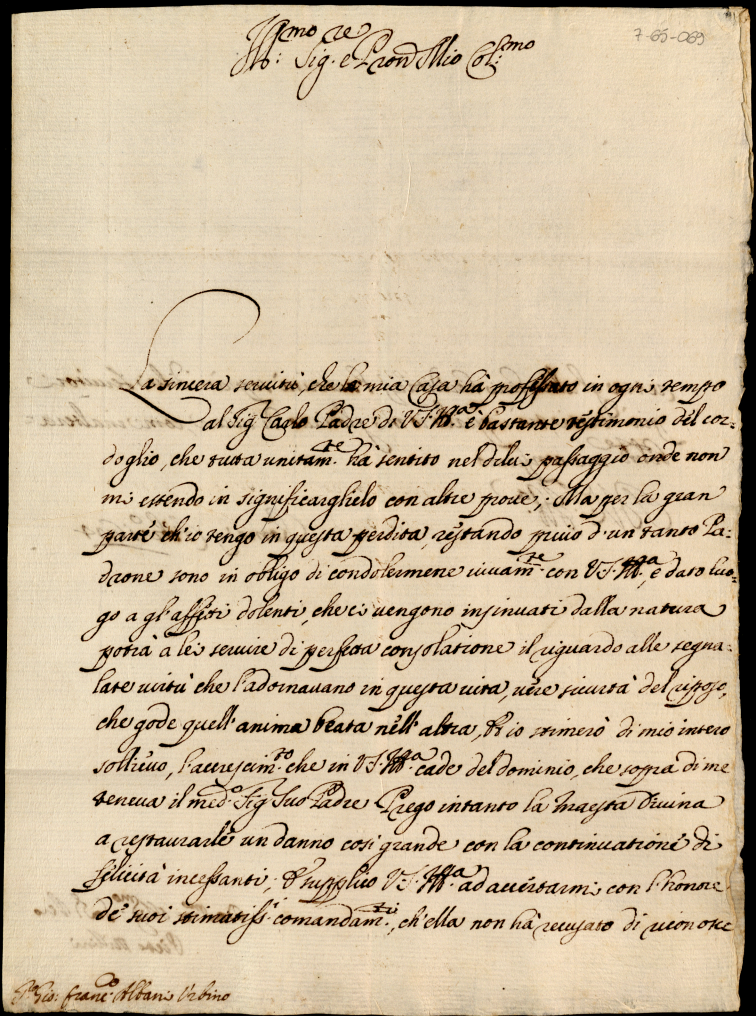 7-65-069
Ill:mo Sig.re e Pron Mio Col:mo
La sincera seruitù, che la mia Casa hà professato in ogni tempo
al Sig Carlo Padre di V.S. Ill:ma è bastante testimonio del cor-
doglio, che tutta unitam.te hà sentito nel di lui passaggio onde non
mi estendo in significarglielo con altre proue; Ma per la gran
parte ch'io tengo in questa perdita, restando priuo d'un tanto Pa-
drone sono in obligo di condolermene uiuam.te con V.S. Ill:ma, e dato luo-
go a gl'affetti dolenti, che ci uengono insinuati dalla natura
potrà à lei seruire di perfetta consolatione il riguardo alle segna-
late uirtù che l'adornauano in questa uita, uere sicurtà del riposo,
che gode quell'anima beata nell'altra, et io stimerò di mio intero
sollieuo, l'accrescim.to che in V.S. Ill:ma cade del dominio, che sopra di me
teneua il med.o Sig Suo Padre Prego intanto la Maestà Diuina
a restaurarle un danno così grande con la continuatione di
felicità incessanti; et supplico V.S. Ill:ma ad accertarmi con l'honore
de suoi stimatiss.i comandam.ti, ch'ella non hà recusato di riconosce
Gio: Franc.o Albani Urbino